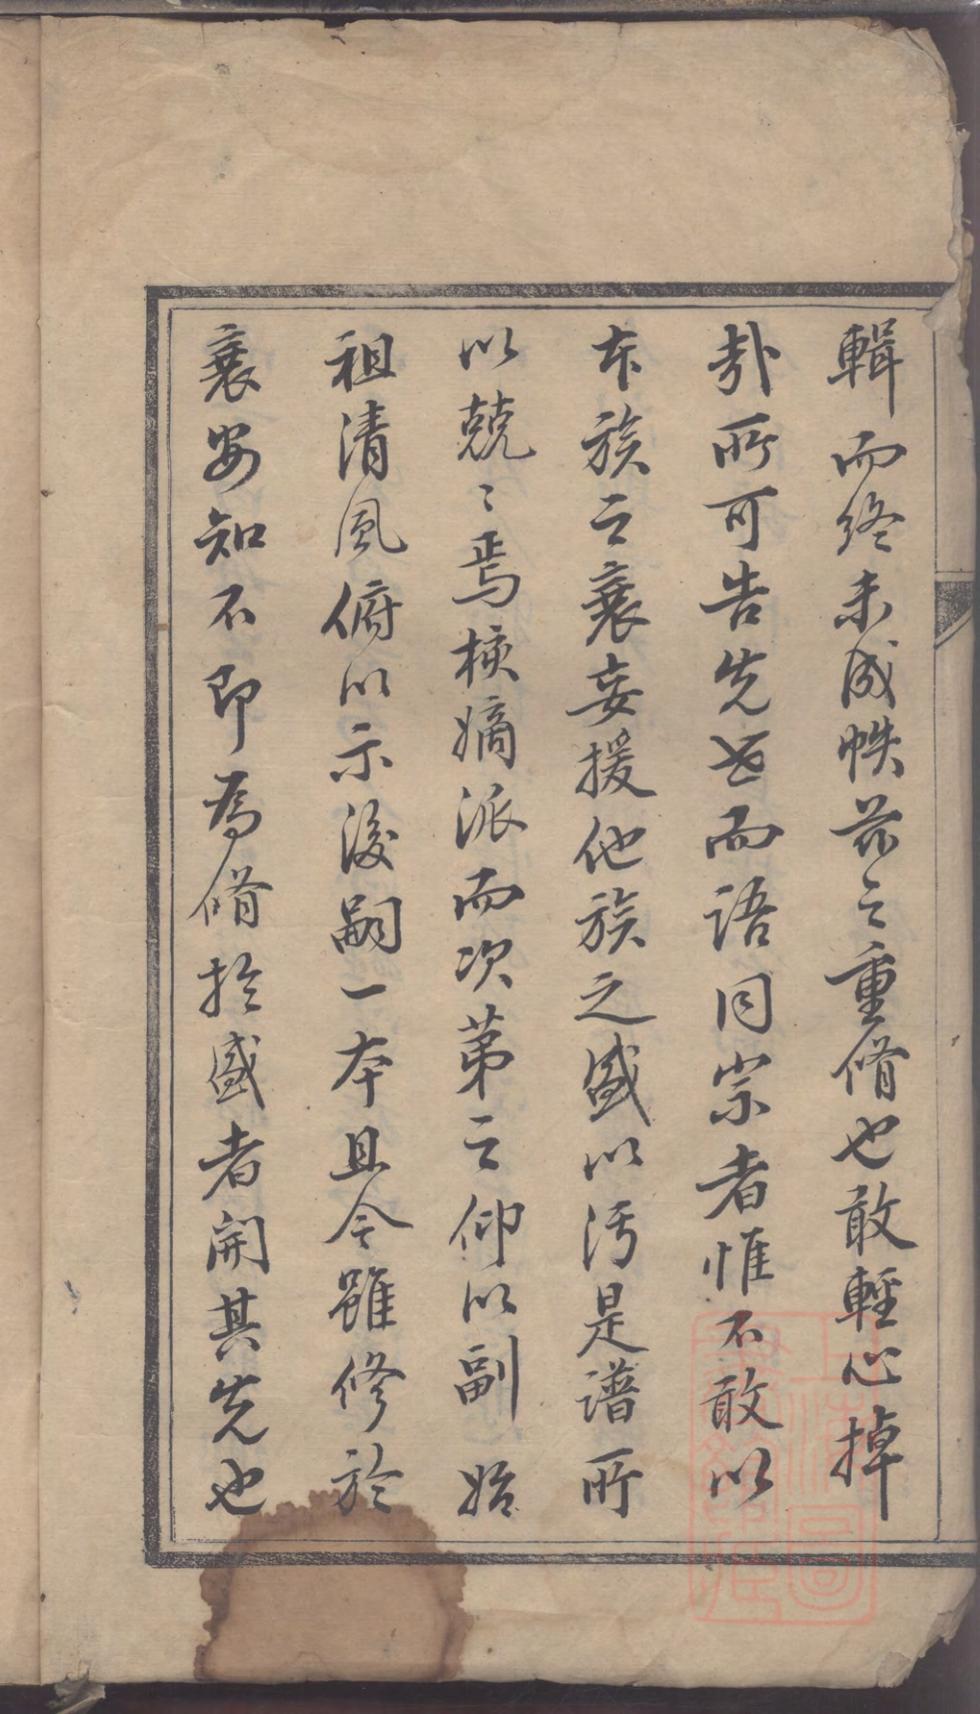 輯而終未成帙茲之重脩也敢輕心掉
哉所可告先世而語同宗者惟不敢以
本族之衰妄援他族之盛以汚是譜所
以兢〻焉核嫡派而次第之仰以副始
祖清風俯以示後嗣一本且今雖修於
衰安知不即為脩於盛者開其先也
上海圖
書館藏